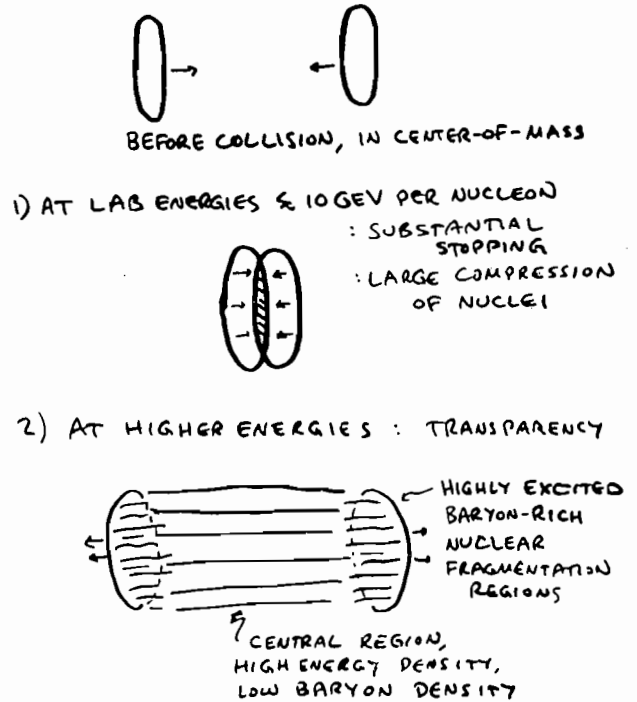 BEFORE COLLISION, IN CENTER-OF-MASS
1) AT LAB ENERGIES ≲ 10 GEV PER NUCLEON
: SUBSTANTIAL
STOPPING
: LARGE COMPRESSION
OF NUCLEI
2) AT HIGHER ENERGIES : TRANSPARENCY
HIGHLY EXCITED
BARYON-RICH
NUCLEAR
FRAGMENTATION
REGIONS
CENTRAL REGION,
HIGH ENERGY DENSITY,
LOW BARYON DENSITY